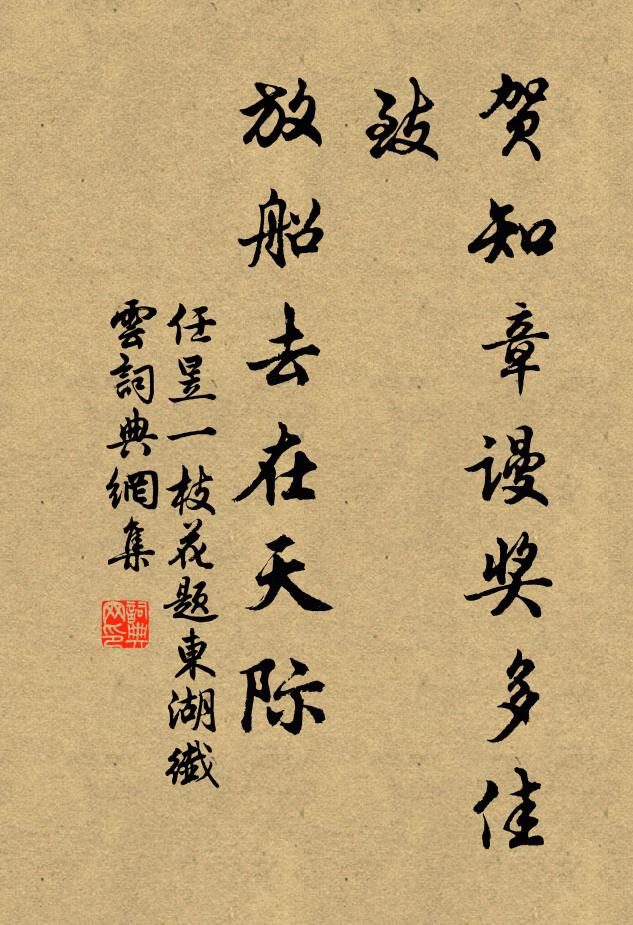 贺知章谩奖多佳
致
放船去在天际
任昱一枝花题東湖纖
雲詞典網集
詞典网印